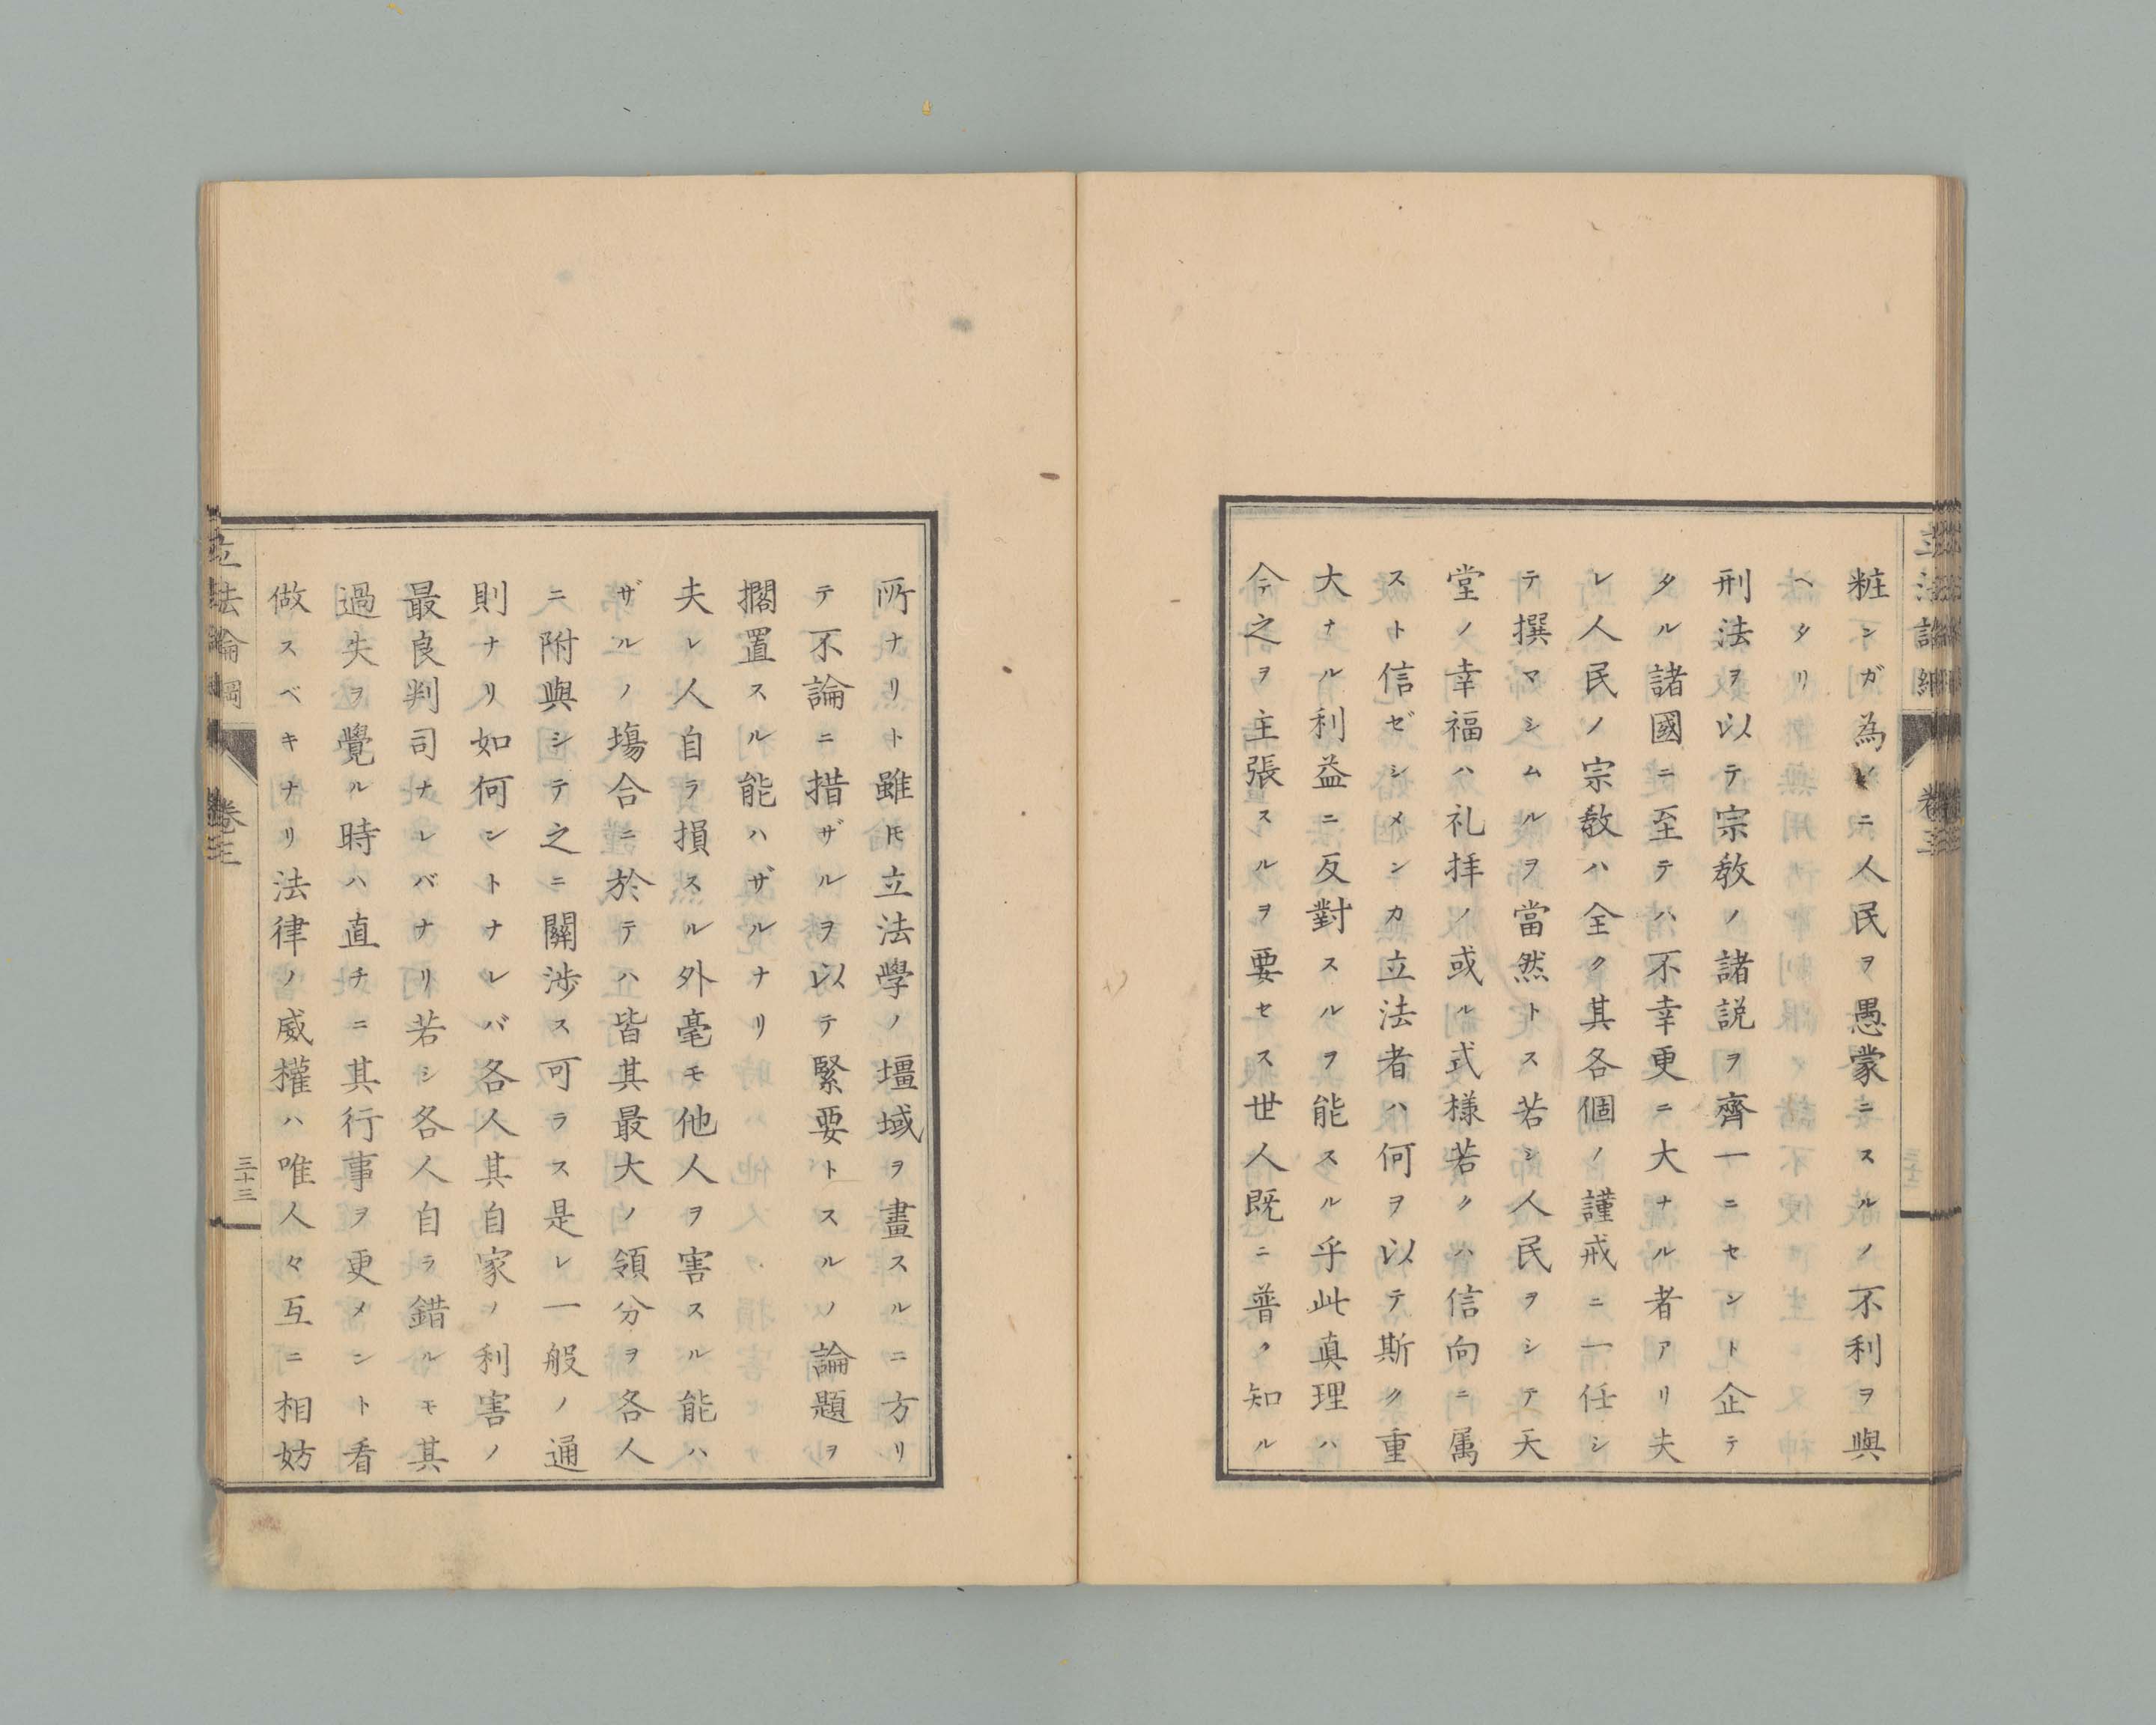 粧ンガ為メニ人民ヲ愚蒙ニスルノ不利ヲ與
ヘタリ
刑法ヲ以テ宗教ノ諸説ヲ齊一ニセント企テ
タル諸國ニ至テハ不幸更ニ大ナル者アリ夫
レ人民ノ宗教ハ全ク其各個ノ謹戒ニ一任シ
テ撰マシムルヲ當然トス若シ人民ヲシテ天
堂ノ幸福ハ礼拝ノ或ル式様若クハ信向ニ属
スト信ゼシメンカ立法者ハ何ヲ以テ斯ク重
大ナル利益ニ反對スルヲ能スル乎此真理ハ
今之ヲ主張スルヲ要セス世人既ニ普ク知ル
所ナリト雖𪜈立法學ノ壃域ヲ畫スルニ方リ
テ不論ニ措ザルヲ以テ緊要トスルノ論題ヲ
擱置スル能ハザルナリ
夫レ人自ラ損スル外毫モ他人ヲ害スル能ハ
ザルノ塲合ニ於テハ皆其最大ノ領分ヲ各人
ニ附與シテ之ニ關渉ス可ラス是レ一般ノ通
則ナリ如何ントナレバ各人其自家ノ利害ノ
最良判司ナレバナリ若シ各人自ラ錯ルモ其
過失ヲ覺ル時ハ直チニ其行事ヲ更メント看
做スベキナリ法律ノ威權ハ唯人々互ニ相妨
立法論綱
卷三
三十三